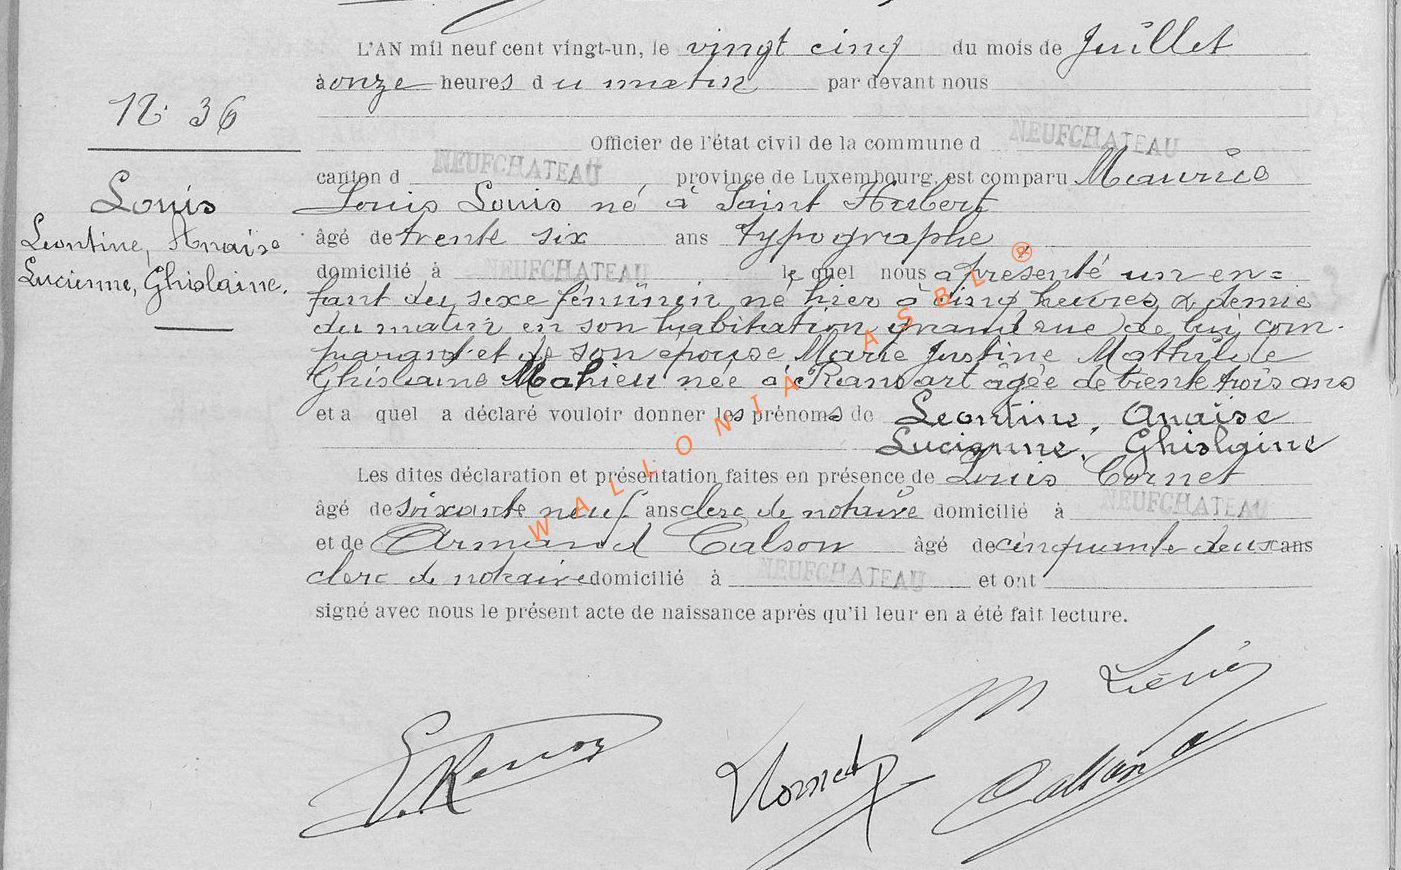 L'AN mil neuf cent vingt-un, le vingt cinq du mois de Juillet
à onze heures du matin par devant nous
N° 36
Officier de l'état civil de la commune d NEUFCHATEAU
canton d NEUFCHATEAU, province de Luxembourg, est comparu Maurice
Louis
Louis Louis né à Saint Hubert
Leontine, Anaïse
âgé de trente six ans typographe
Lucienne, Ghislaine.
domicilié à NEUFCHATEAU lequel nous a présenté un en=
fant du sexe féminin né hier à cinq heures & demie
du matin en son habitation grand rue de lui com-
parant et de son épouse Marie Justine Mathilde
Ghislaine Mahieu née à Ransart âgée de trente trois ans
et a quel a déclaré vouloir donner les prénoms de Leontine, Anaïse
Lucienne, Ghislaine
Les dites déclaration et présentation faites en présence de Louis Cornet
âgé de soixante neuf ans clerc de notaire domicilié à NEUFCHATEAU
et de Armand Calson âgé de cinquante deux ans
clerc de notaire domicilié à NEUFCHATEAU et ont
signé avec nous le présent acte de naissance après qu'il leur en a été fait lecture.
WALLONIA ASBL ®